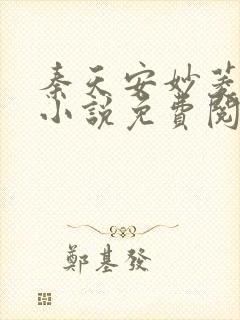 秦天安妙菱
小說免費閱
鄭基發